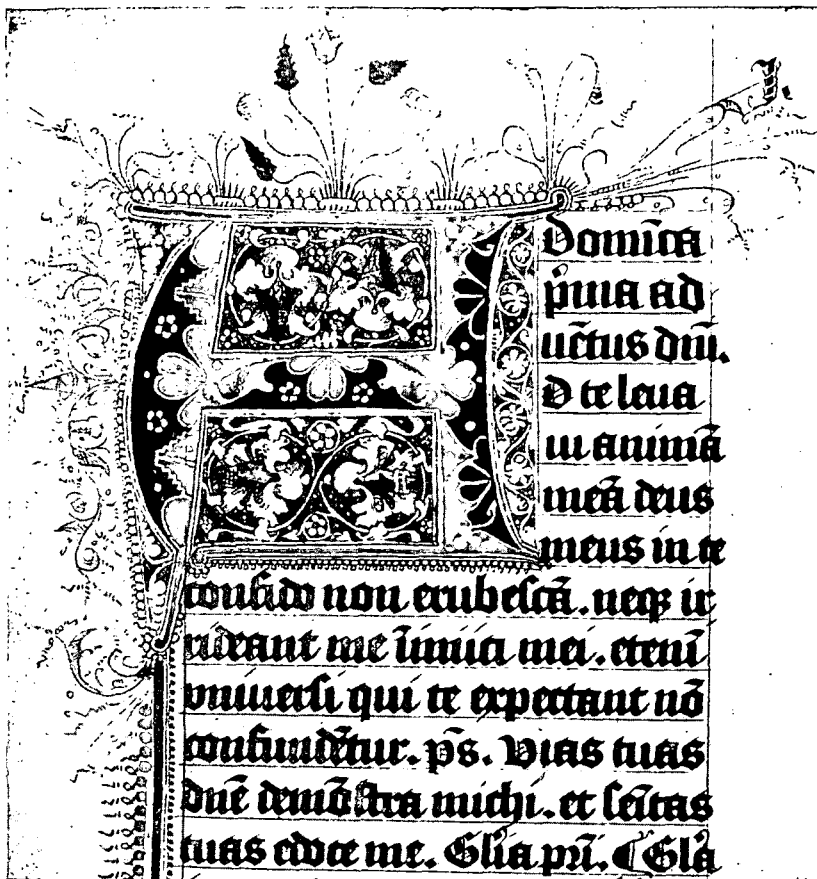 Domīca
p̄ma ad
uētus dm̄.
D te leua
ui animā
meā deus
meus in te
confido non erubescā. neqꝫ ir
rideant me īimici mei. etenī
vniuersi qui te expectant nō
confundētur. ps̄. Vias tuas
dn̄e demōstra michi. et semitas
tuas edoce me. Glīa pri̅. ¶ Glā